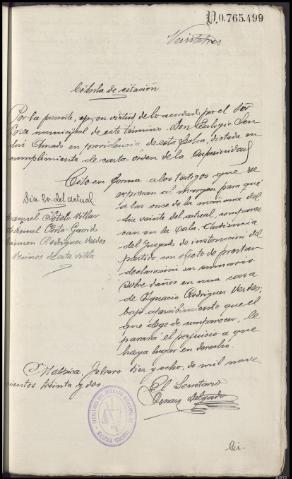 N.0.765.499
Veintitres
Cédula de citación
Por la presente, y en virtud de lo acordado por el Sor
Juez municipal de este término Don Eulogio
en providencia de esta fecha, dictada en
cumplimiento de carta orden de la Superioridad
Cito en forma a los testigos que se
expresan al margen para que
a las once de la mañana del
día veinte del actual, comparez-
can en la Sala Audiencia
del Juzgado de instrucción del
partido, con objeto de prestar
declaración en sumario
sobre daños en una casa
de Ignacio Rodríguez Verdes,
bajo apercibimiento que el
que deje de comparecer, le
parará el perjuicio a que
haya lugar en derecho.
Día 20 del actual
Manuel Villar
Manuel
Ramon Rodríguez Verdes
Vecinos
Febrero diez y ocho, de mil nove
cientos treinta y dos
El Secretario
Delgado